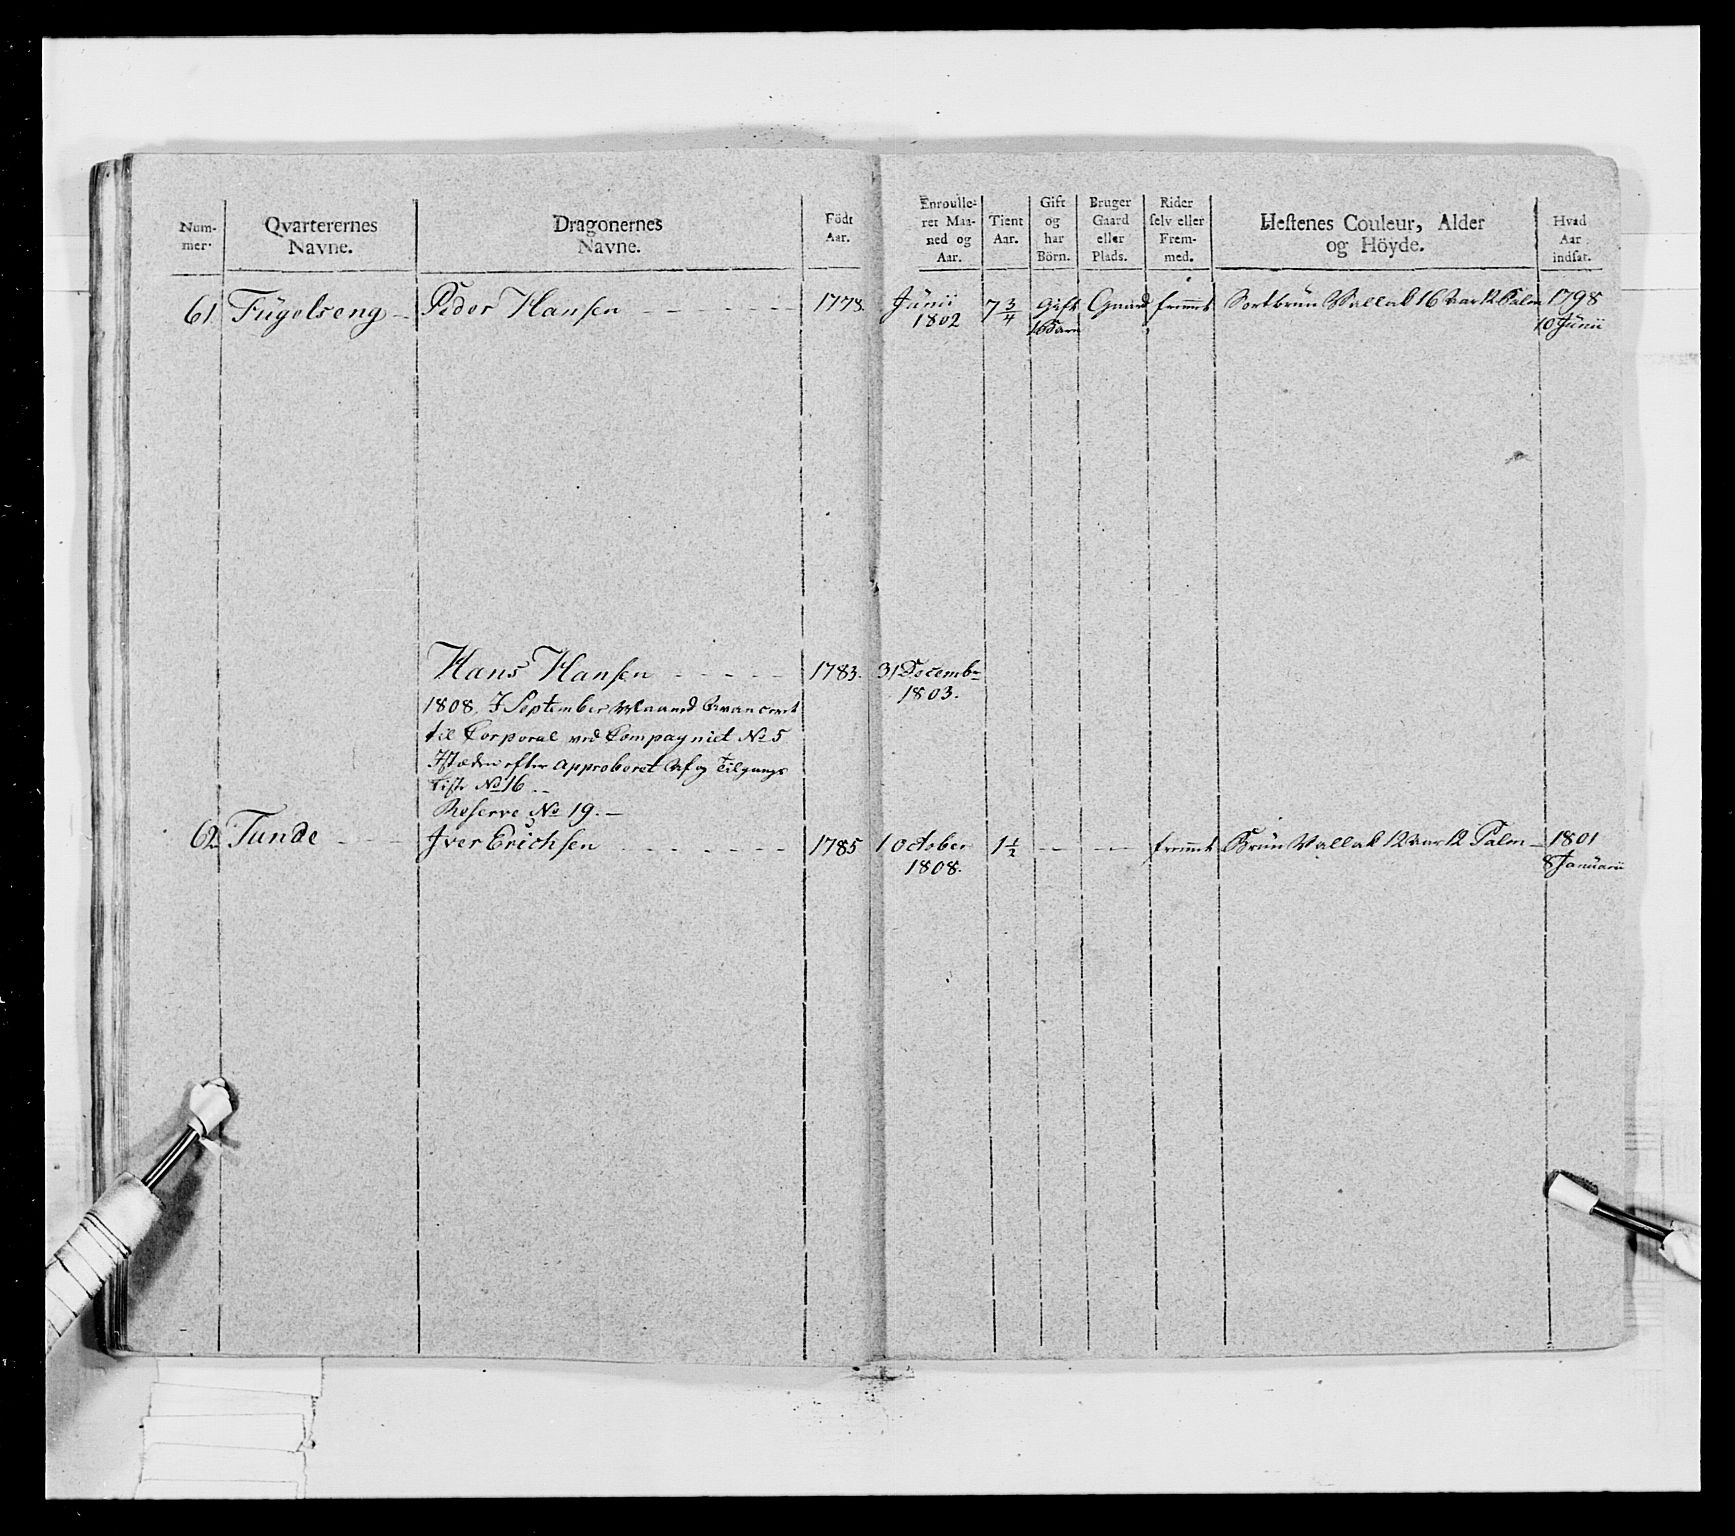 Num-
mer.
Qvarterernes
Navne.
Dragonernes
Navne.
Födt
Aar.
Enroulle-
ret Maa-
ned og
Aar.
Tient
Aar.
Gift
og
har
Börn.
Bruger
Gaard
eller
Plads.
Rider
selv eller
Frem-
med.
Hestenes Couleur, Alder
og Höyde.
Hvad
Aar
indsat.
61. Fügelseng Peder Hansen 1778. Junii 7 3/4 Gift Gaard fremt Sortbrun Vallak 16 Aar 12 Palm 1798
1802 1 Barn 10 Junii
Hans Hansen 1783. 31 Decembr
1803.
1808. I September Maaned Avancert
til Corporal ved Compagniet No 5
Istæden efter Approberet Af og Tilgangs
Liste No 16
Reserve No 19.
62. Tunde Iver Erichsen 1785 1 October 1 1/2 fremt Brun Vallak 12 Aar 12 Palm 1801
1808. 8 Januarii